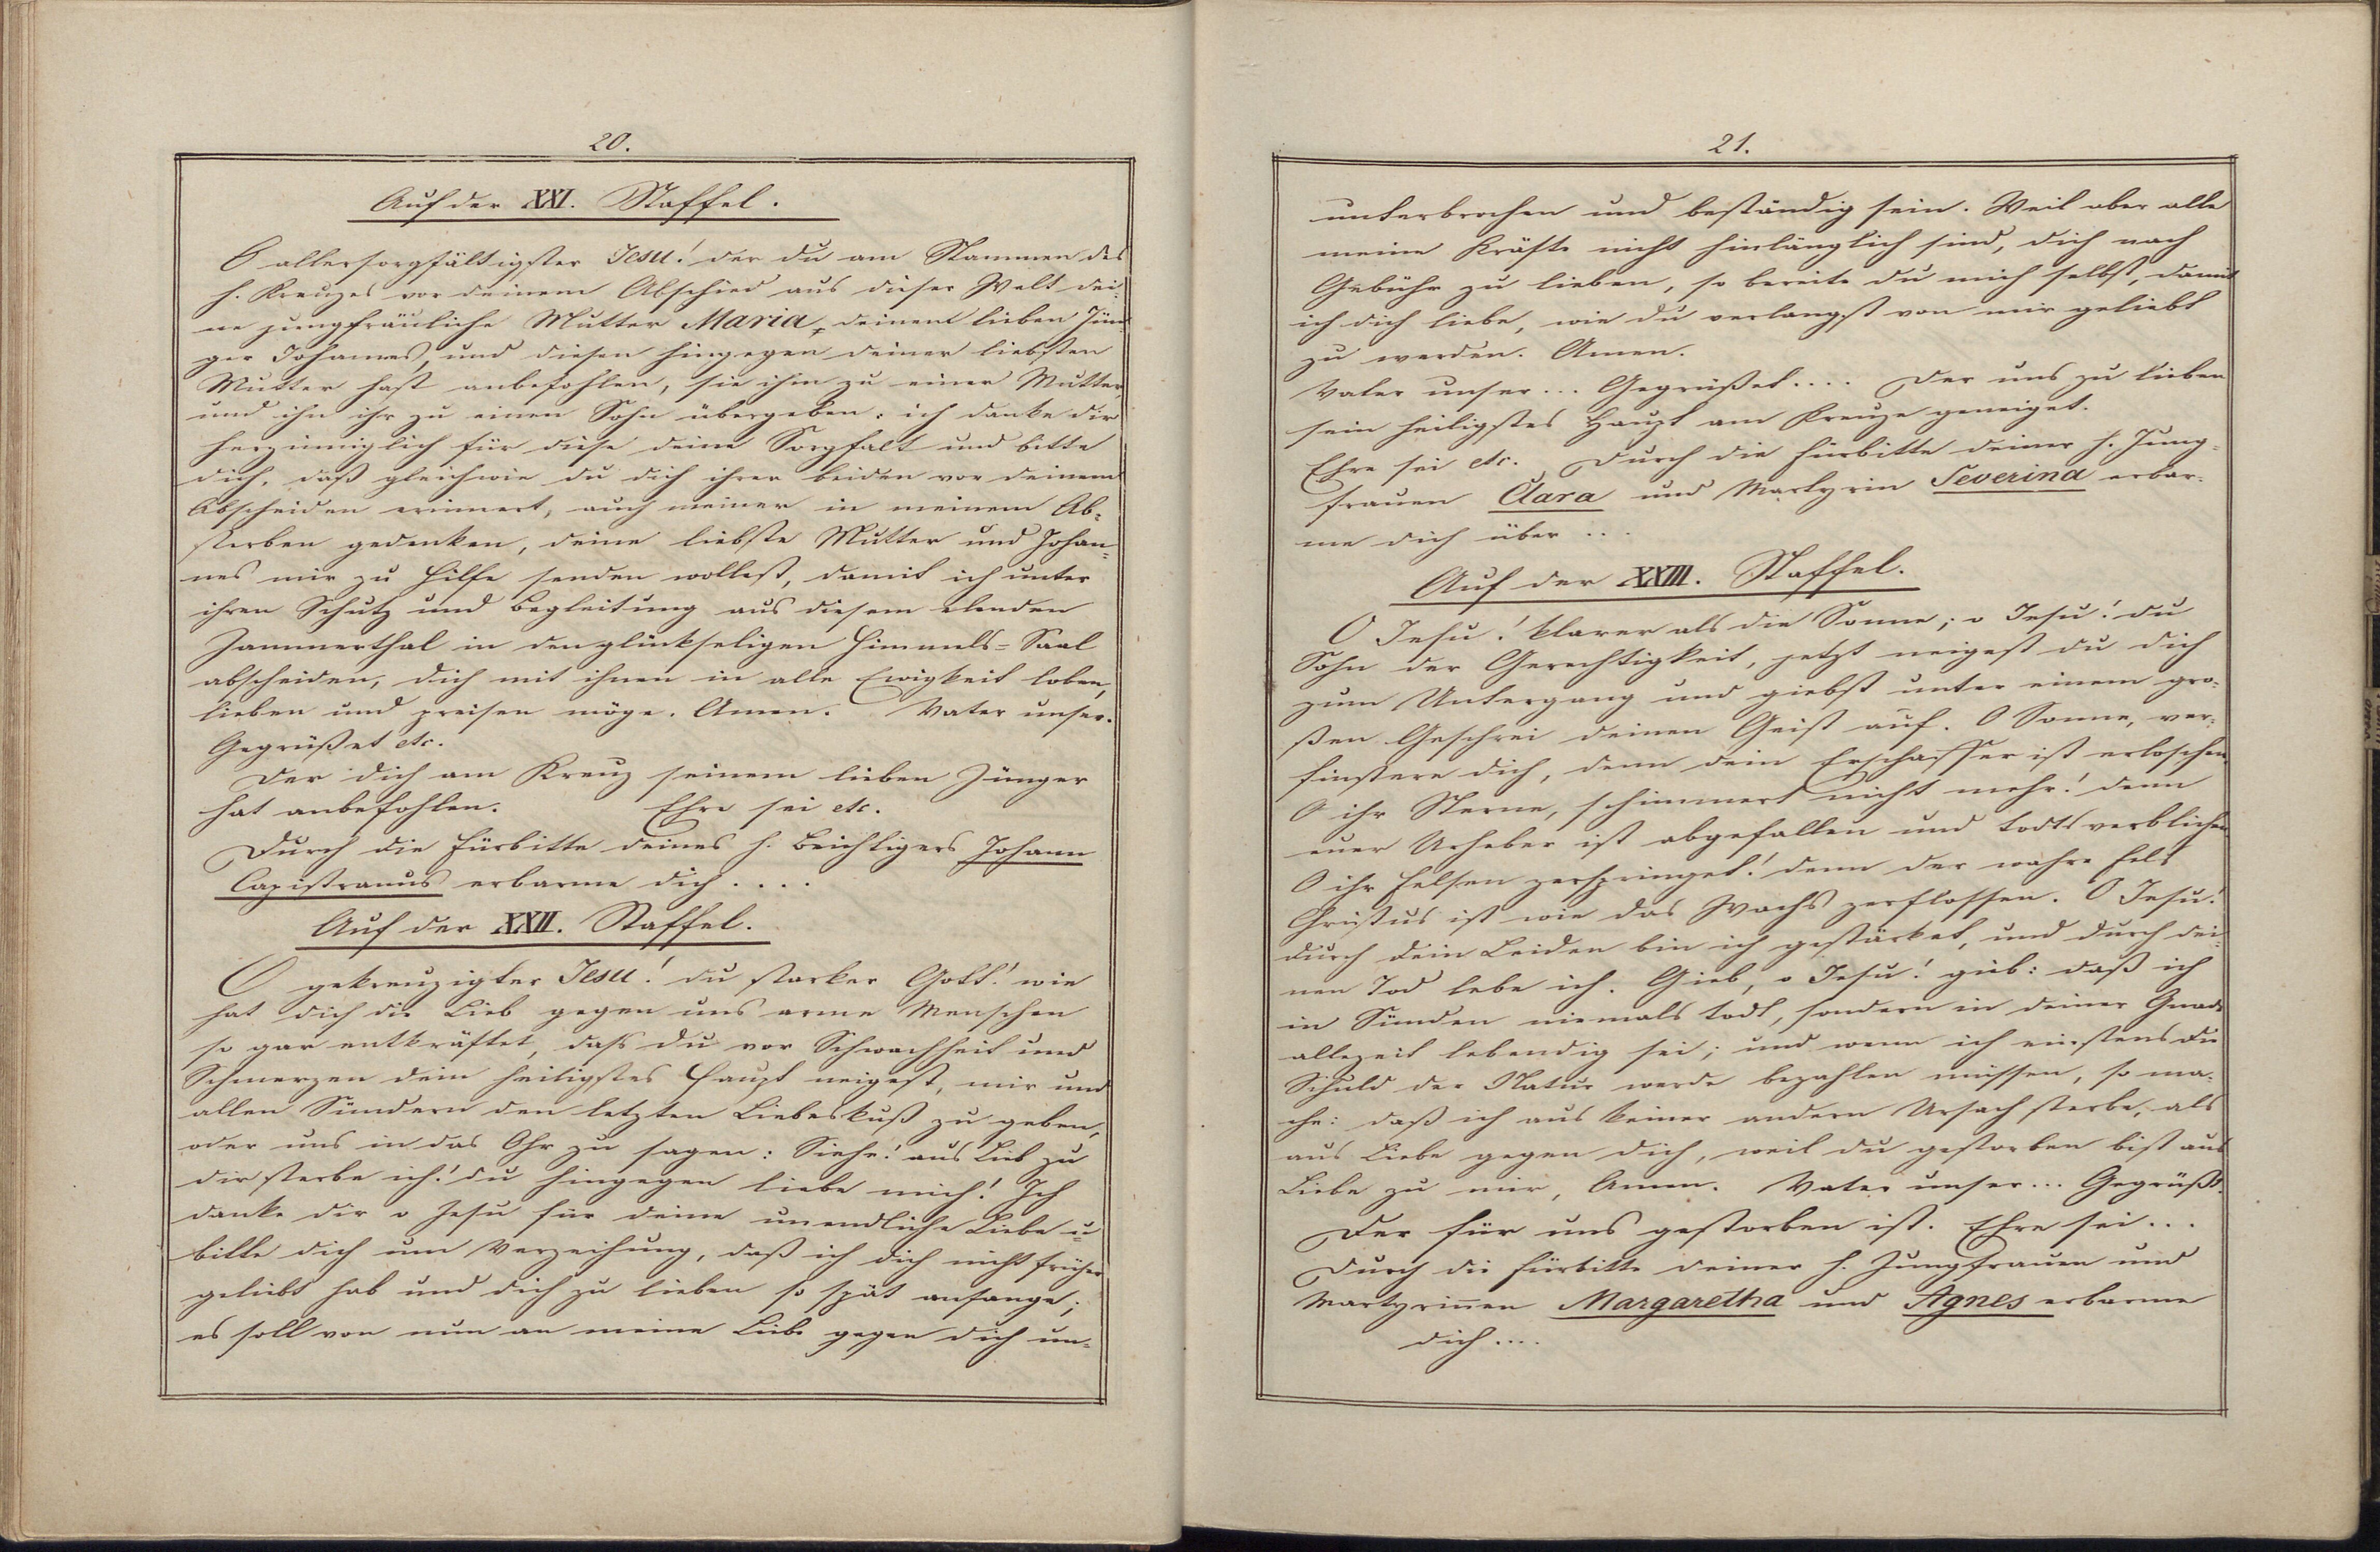 20.
Auf der XXI. Staffel.
O allersorgfältigster Jesu! der du am Stammen des
h. Kreuzes vor deinem Abschied aus dieser Welt dei-
ne jungfräuliche Mutter Maria, deinem lieben Jün-
ger Johannes, und diesen hingegen deiner liebsten
Mutter hast anbefohlen, sie ihm zu einer Mutter,
und ihn ihr zu einen Sohn übergeben: ich danke dir
herzinniglich für diese deine Sorgfalt und bitte
dich, daß gleichwie du dich ihrer beiden vor deinem
Abscheiden erinnert, auch meiner in meinem Ab-
sterben gedenken, deine liebste Mutter und Johan-
nes mir zu Hilfe senden wollest, damit ich unter
ihren Schutz und Begleitung aus diesem elenden
Jammerthal in den glückseligen Himmels-Saal
abscheiden, dich mit ihnen in alle Ewigkeit loben,
lieben und preisen möge. Amen. Vater unser.
Gegrüßet etc.
Der dich am Kreuz seinem lieben Jünger
hat anbefohlen. Ehre sei etc.
Durch die Fürbitte deines h. Beichtigers Johann
Capistranus erbarme dich....
Auf der XXII. Staffel.
O gekreuzigter Jesu! du starker Gott! wie
hat dich die Lieb gegen uns arme Menschen
so gar entkräftet, dass du vor Schwachheit und
Schmerzen dein heiligstes Haupt neigest, mir und
allen Sündern den letzten Liebeskuß zu geben,
oder uns in das Ohr zu sagen: Siehe! aus Lieb zu
dir sterbe ich! du hingegen liebe mich! Ich
danke dir o Jesu für deine unendliche Liebe u
bitte dich um Verzeihung, daß ich dich nicht früher
geliebt hab und dich zu lieben so spät anfange;
es soll von nun an meine Liebe gegen dich un-
21.
unterbrochen und beständig sein. Weil aber alle
meine Kräfte nicht hinlänglich sind, dich nach
Gebühr zu lieben, so bereite du mich selbst, damit
ich dich liebe, wie du verlangst von mir geliebt
zu werden. Amen.
Vater unser... Gegrüßet.... Der uns zu lieben
sein heiligstes Haupt am Kreuze geneiget.
Ehre sei etc. Durch die Fürbitte deiner h. Jung-
frauen Clara und Martyrin Severina erbar-
me dich über...
Auf der XXIII. Staffel.
O Jesu! klarer als die Sonne; o Jesu! du
Sohn der Gerechtigkeit, jetzt neigest du dich
zum Untergang und giebst unter einem gro-
ßen Geschrei deinen Geist auf. O Sonne, ver-
finstere dich, denn dein Erschaffer ist erloschen
O ihr Sterne, schimmert nicht mehr! denn
euer Urheber ist abgefallen und todts verblichen
O ihr Felsen zerspringet! denn der wahre Fels
Christus ist wie das Wachs zerflossen. O Jesu!
durch dein Leiden bin ich gestärket, und durch dei-
nen Tod lebe ich. Gieb, o Jesu! gieb: daß ich
in Sünden niemals todt, sondern in deiner Gnade
allezeit lebendig sei; und wenn ich einstens die
Schuld der Natur werde bezahlen müssen, so ma-
che: daß ich aus keiner andern Ursach sterbe, als
aus Liebe gegen dich, weil du gestorben bist aus
Liebe zu mir, Amen. Vater unser... Gegrüßt.
Der für uns gestorben ist. Ehre sei...
Durch die Fürbitte deiner h. Jungfrauen und
Martyrinen Margaretha und Agnes erbarme
dich....